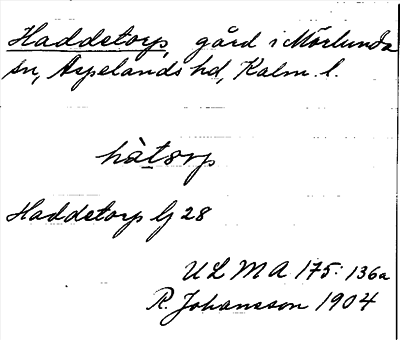 Haddetorp, gård i Mörlunda
sn, Aspelands hd, Kalm. l.
hàtorp
Haddetorp Lj 28
ULMA 175: 136a
R. Johansson 1904